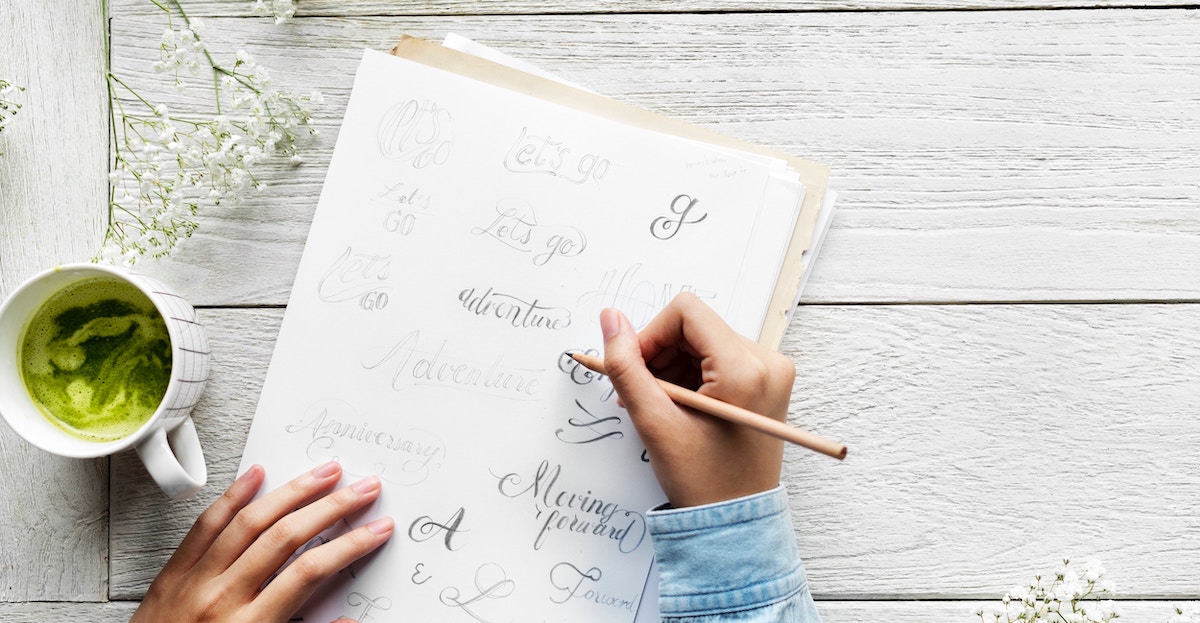 Let's
GO
Let's go
Let's
GO
Let's go
g
Let's
GO
adventure
HOME
Adventure
Anniversary
Moving
forward
A
&
Forward